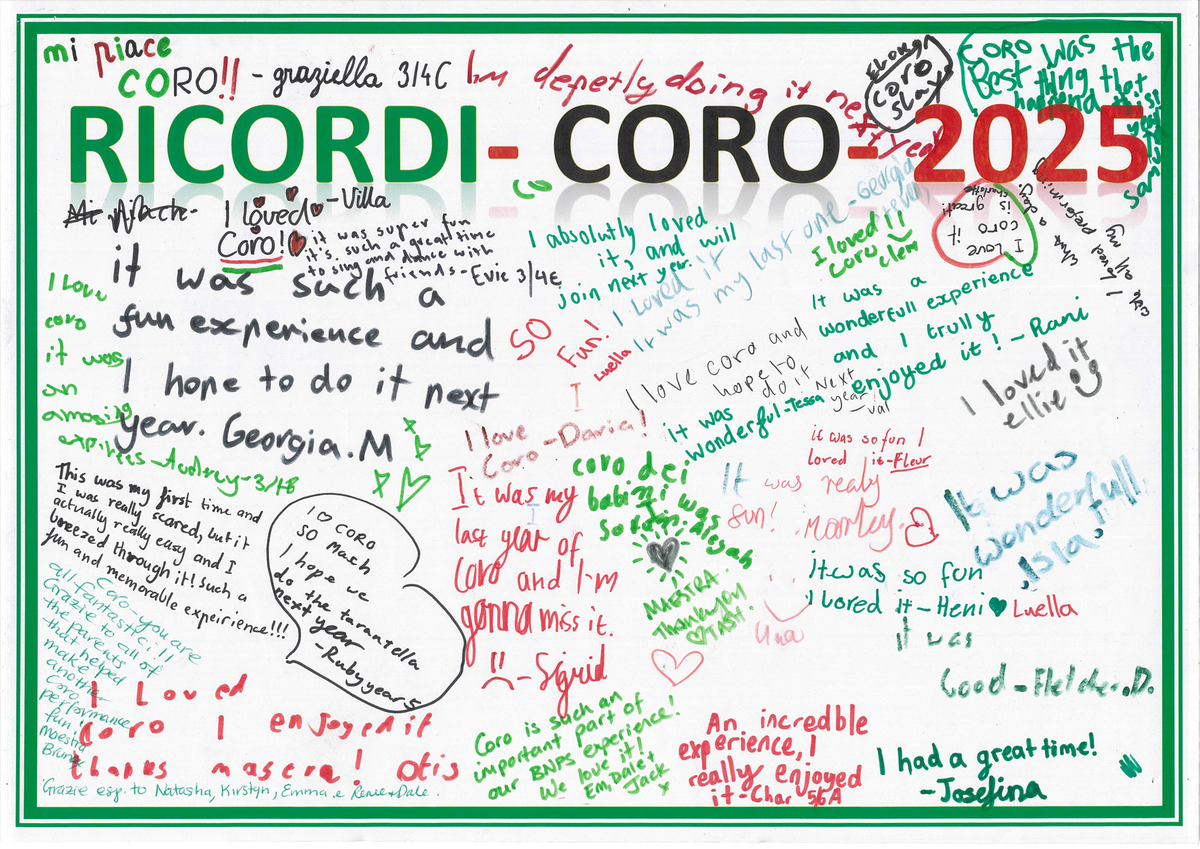 mi piace
CORO!! - graziella 3/4C
Im depetly doing it next year
coro
slay
CORO was the
Best thing that
happend this
year!
Samuel
RICORDI- CORO- 2025
I loved - Villa
Coro!
it was super fun
it's such a great time
to sing and dance with
friends - Evie 3/4E
it was such a
fun experience and
I hope to do it next
year. Georgia.M
I absolutly loved
it, and will
join next year.
I loved it
It was my last one - Georgia
I loved it
coro!!
clem
I love
coro it
is great!
charlotte
I loved
preforming
a day
SO
Fun!
Luella
It was a
wonderfull experience
and I trully
enjoyed it! - Rani
I love coro and
hope to
do it next
year!
- val
it was
wonderful - Tessa
I loved it
ellie
I love
coro
it was
an
amasing
expirees - Audrey - 3/4B
I love
Coro - Daria!
I
coro dei
babini was
So fun. Aleyah
it was so fun I
loved it - Fleur
It was realy
fun!
Morley.
It was
wonderfull
Isla!!
This was my first time and
I was really scared, but it
actually really easy and I
breezed through it! Such a
fun and memorable expeirience!!!
I ♡ CORO
SO Mach
I hope we
do the tarantella
next year
- Ruby years
It was my
last year of
Coro and I'm
gonna miss it.
- Sigrid
I
MAESTRA
Thankyou
♡ TASH!
Una
It was so fun
I loved it - Heni ♥ Luella
it was
Good - Fletcher.D.
Coro - you are
all fantastici!!
Grazie to all of
the parents
that helped
make
another
Coro
performance
fun!
Maestra
Bruna
Grazie esp. to Natasha, Kirstyn, Emma e Renie + Dale.
I Loved
Coro I enjoyed it
thanks mastra! otis
Coro is such an
important part of
our BNPS experience!
We love it!
Em, Dale +
Jack
x
An incredible
experience, I
really enjoyed
it - Char 5/6A
I had a great time!
- Josefina